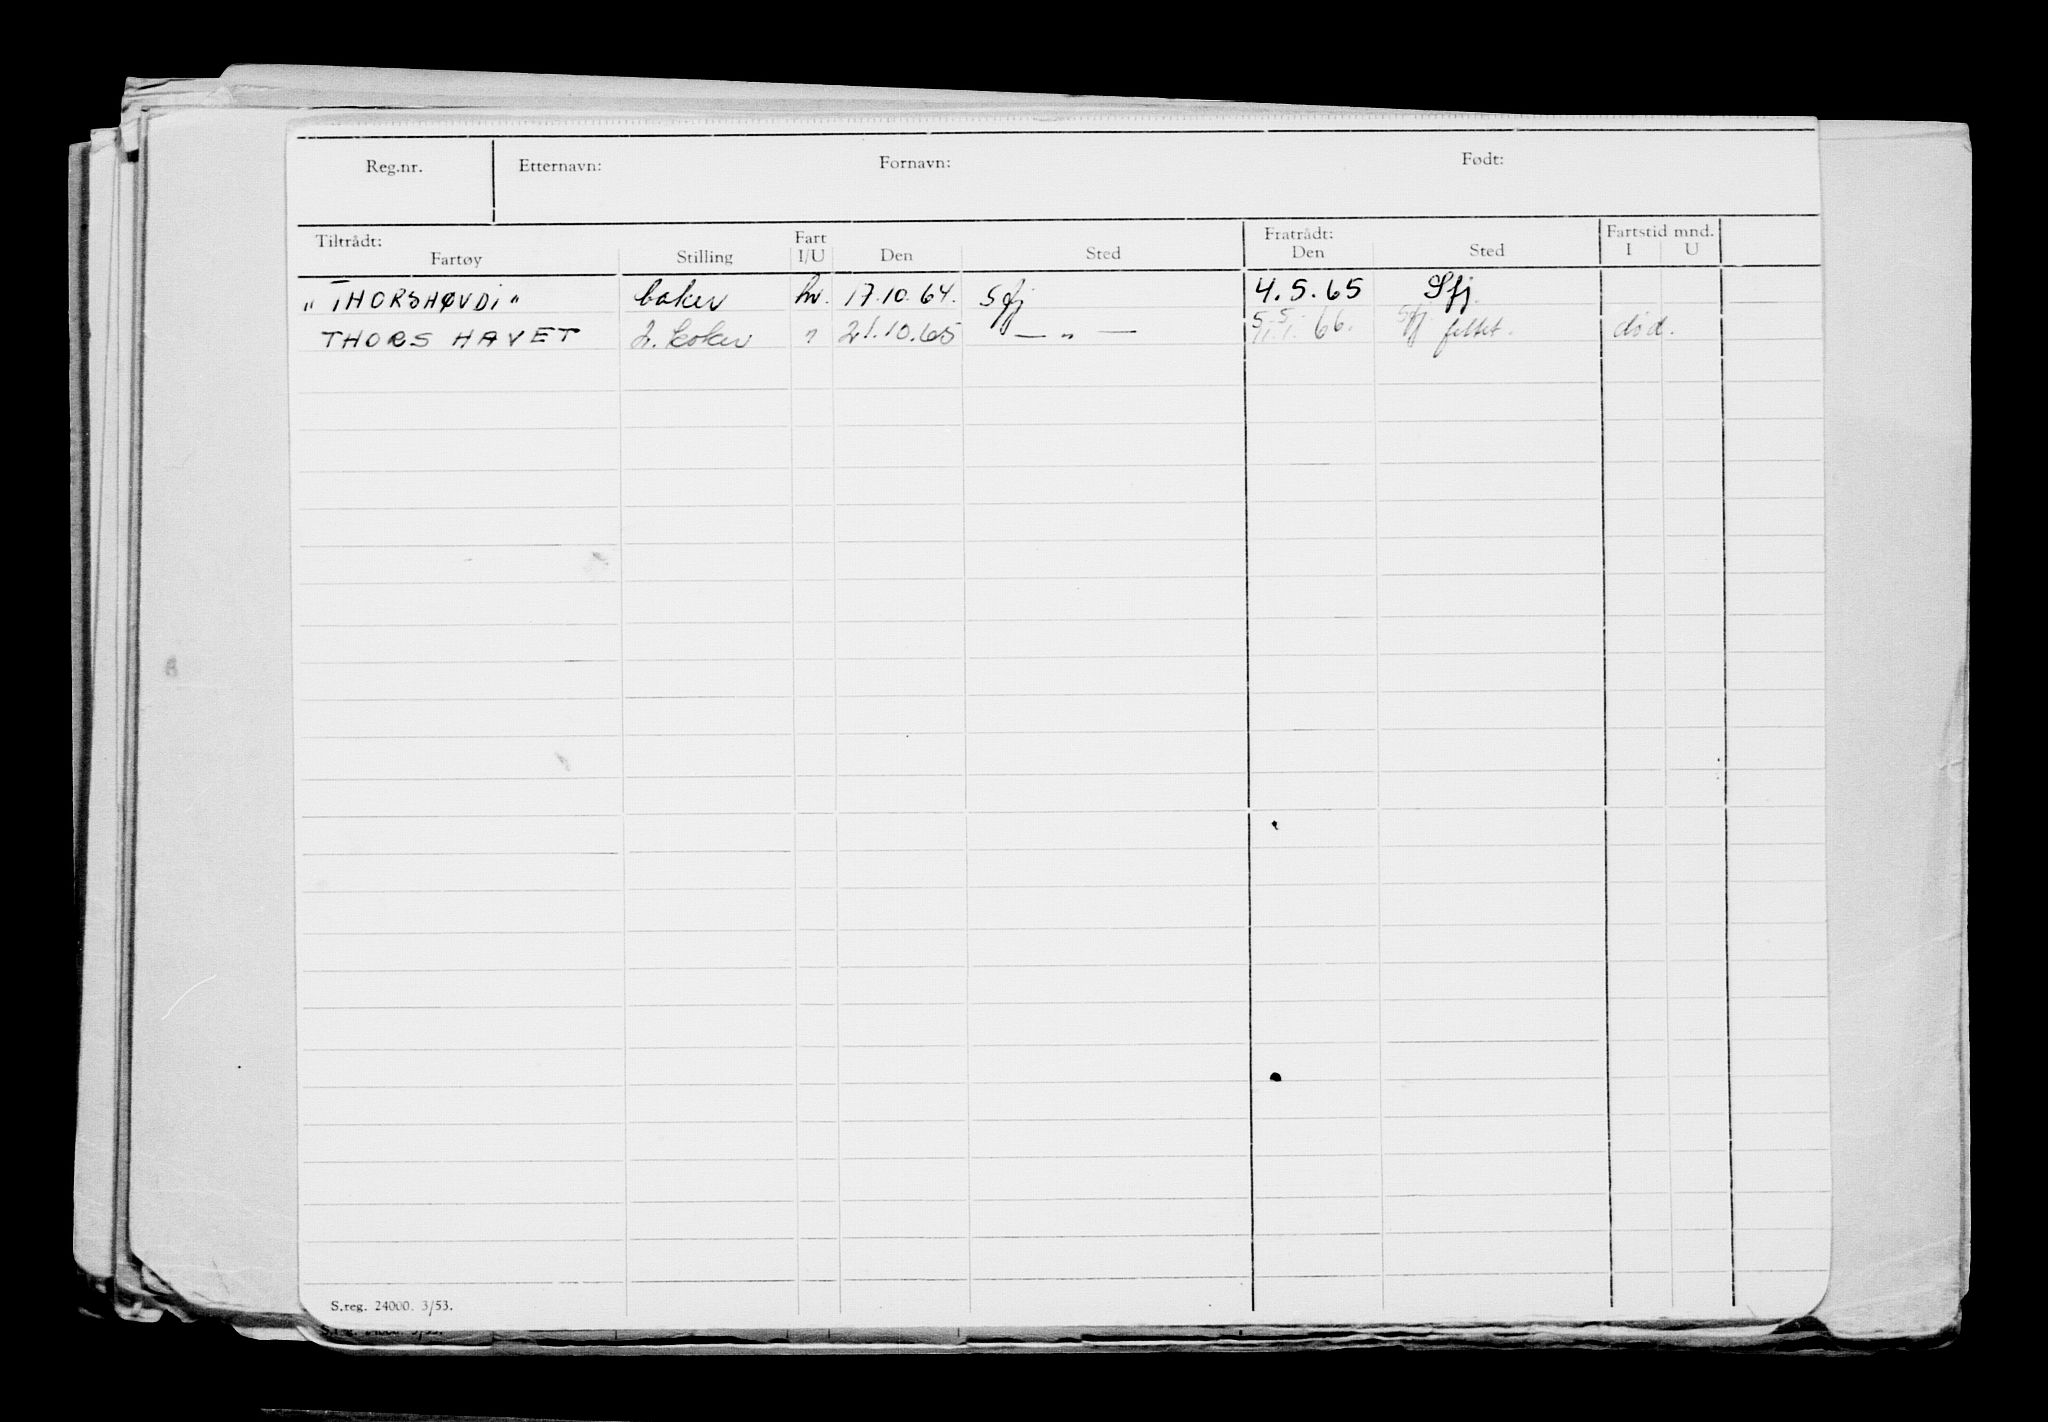 Reg.nr. Etternavn: Fornavn: Født:
Tiltrådt: Fart Fratrådt: Fartstid mnd.
Fartøy Stilling I/U Den Sted Den Sted I U
„ THORSHØVDI " baker hv. 17.10.64. Sfj 4.5.65 Sfj.
THORS HAVET 2. koker " 21.10.65 — „ — 66. feltet. død.
S.reg. 24000. 3/53.